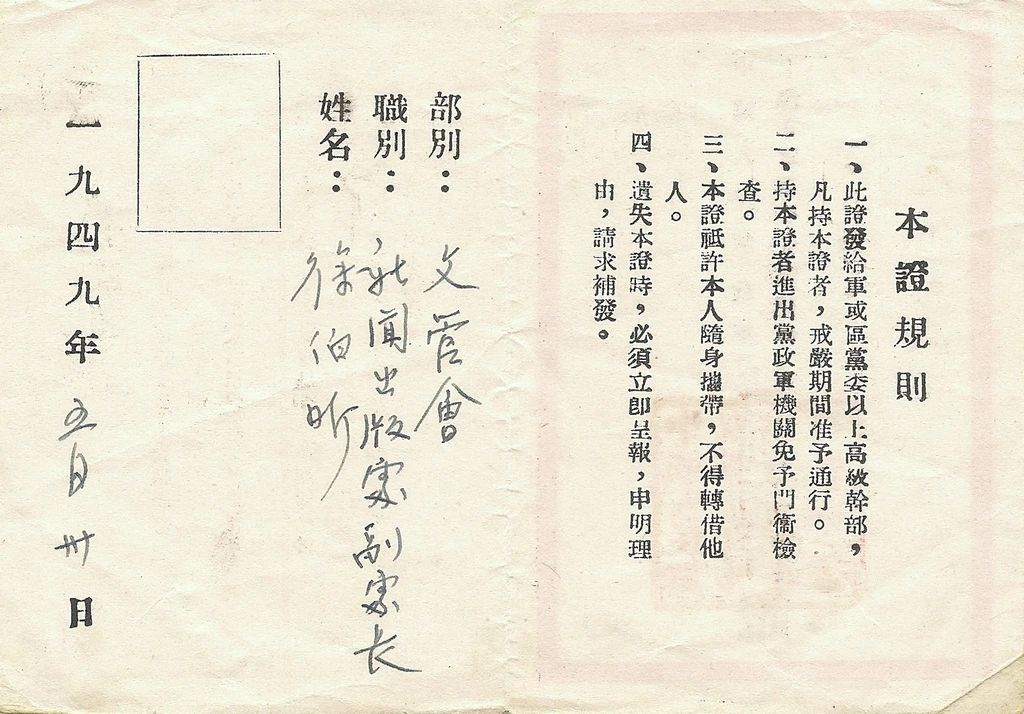 本證規則
一、此證發給軍或區黨委以上高級幹部，
凡持本證者，戒嚴期間准予通行。
二、持本證者進出黨政軍機關免予門衞檢
查。
三、本證祗許本人隨身攜帶，不得轉借他
人。
四、遺失本證時，必須立即呈報，申明理
由，請求補發。
部別：文管會
職別：新闻出版室副室长
姓名：徐伯昕
一九四九年五月卅日